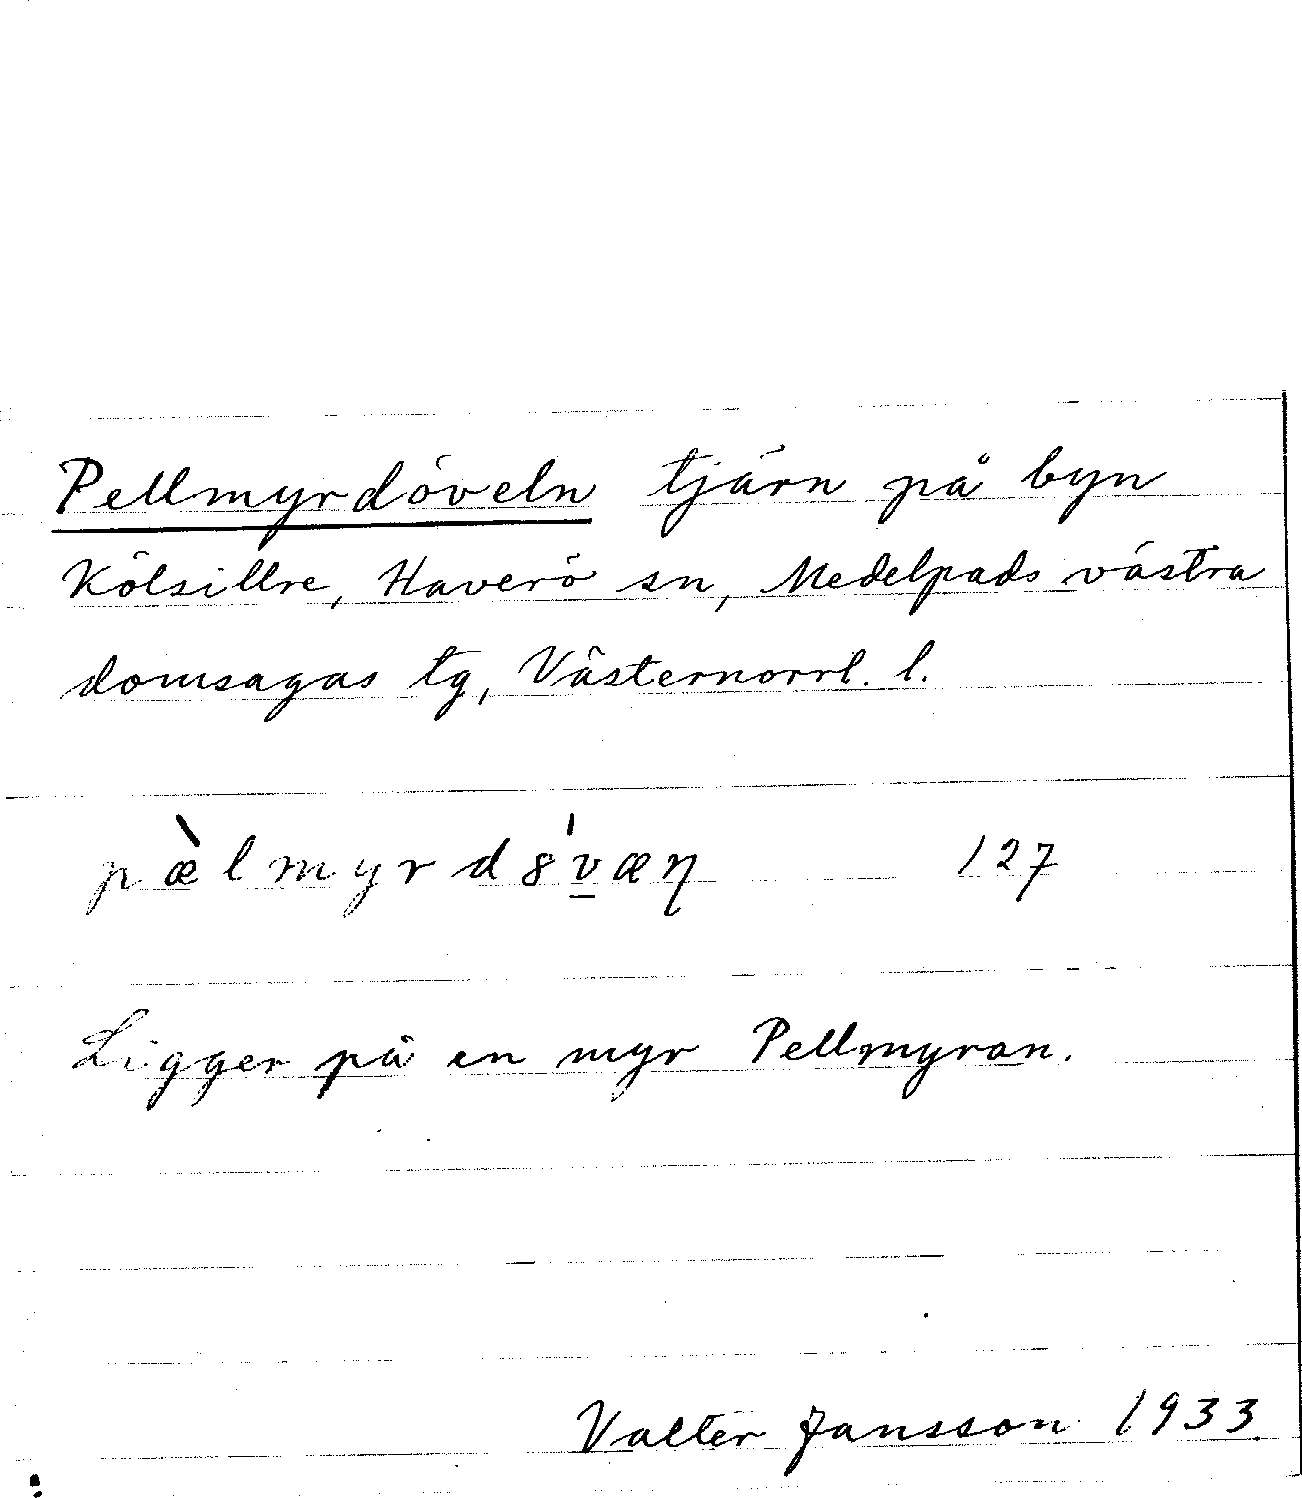 Pellmyrdöveln tjärn på byn
Kölsillre, Haverö sn, Medelpads västra
domsagas tg, Västernorrl. l.
pæ̀lmyrd8́v̲æη 127
Ligger på en myr Pellmyran.
Valter Jansson 1933.